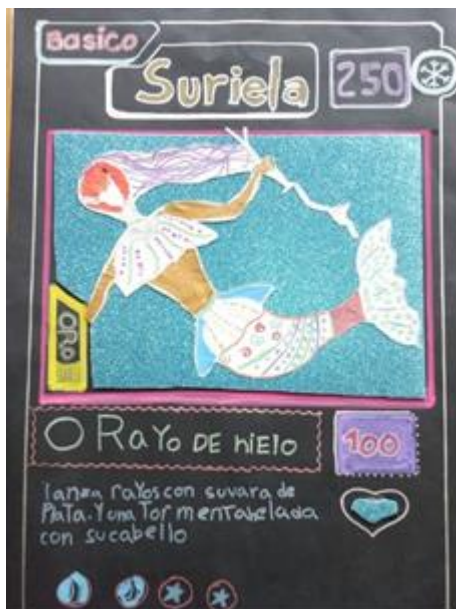 Basico
Suriela
250
ORO
O RAYO DE hiElo
100
lanza rayos con su vara de
Plata. Y una Tormenta helada
con su cabello